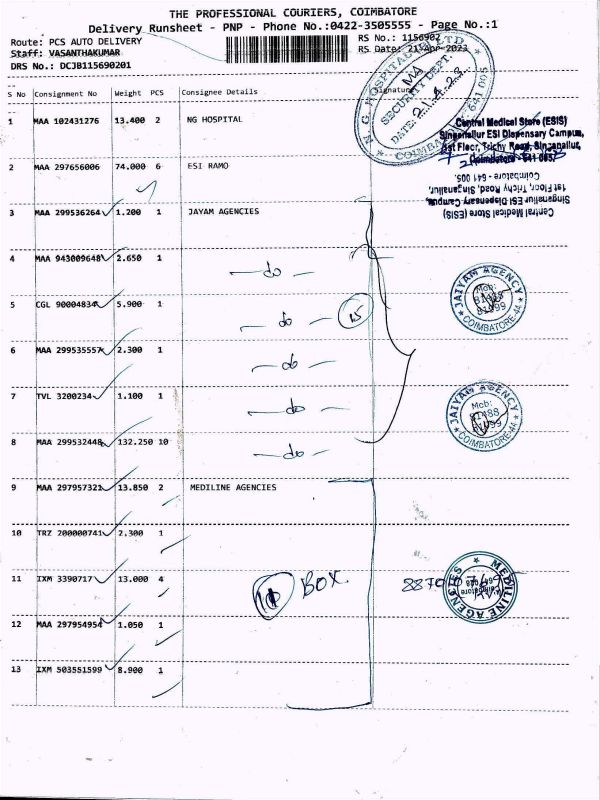 THE PROFESSIONAL COURIERS, COIMBATORE
Delivery Runsheet - PNP - Phone No.:0422-3505555 - Page No.:1
Route: PCS AUTO DELIVERY
RS No.: 1156902
Staff: VASANTHAKUMAR
RS Date: 21-Apr-2023
DRS No.: DCJB115690201
S No Consignment No Weight PCS Consignee Details Signature
1 MAA 102431276 13.400 2 NG HOSPITAL
N. G. HOSPITAL LTD
SECURITY DEPT.
DATE: 21.4.23
COIMBATORE 641 005
Central Medical Store (ESIS)
Singanallur ESI Dispensary Campus,
1st Floor, Trichy Road, Singanallur,
Coimbatore - 641 005.
2 MAA 297656006 74.000 6 ESI RAMO
Central Medical Store (ESIS)
Singanallur ESI Dispensary Campus,
1st Floor, Trichy Road, Singanallur,
Coimbatore - 641 005.
3 MAA 299536264 1.200 1 JAYAM AGENCIES
4 MAA 943009648 2.650 1 — do —
JAIYAM AGENCY
Mob:
81488
81099
COIMBATORE-44
5 CGL 90004834 5.900 1 — do — 15
6 MAA 299535557 2.300 1 — do —
7 TVL 3200234 1.100 1 — do —
JAIYAM AGENCY
Mob:
81488
81099
COIMBATORE-44
8 MAA 299532448 132.250 10 — do —
9 MAA 297957321 13.850 2 MEDILINE AGENCIES
10 TRZ 200000741 2.300 1
11 IXM 3390717 13.000 4 BOX.
MEDILINE AGENCIES
12 MAA 297954954 1.050 1
13 IXM 503551599 8.900 1